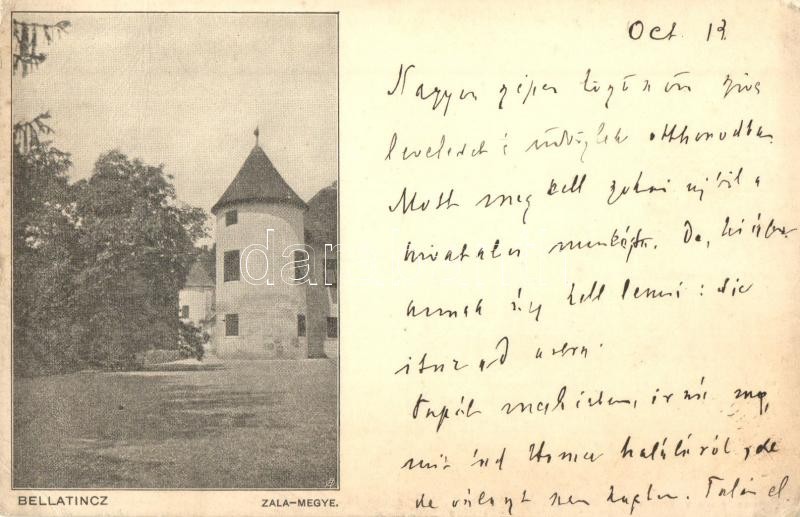 Oct. 13.
Nagyon szépen köszönöm szives
leveledet s üdvözlek otthonodban.
Most meg kell szokni ujból a
hivatalos munkát. De, hiába
annak így kell lenni: sic
itur ad astra.
Tapát megkértem, írná meg,
mit tud Homa haláláról, de
de választ nem kaptam. Talán el
BELLATINCZ
ZALA-MEGYE.
darabanth